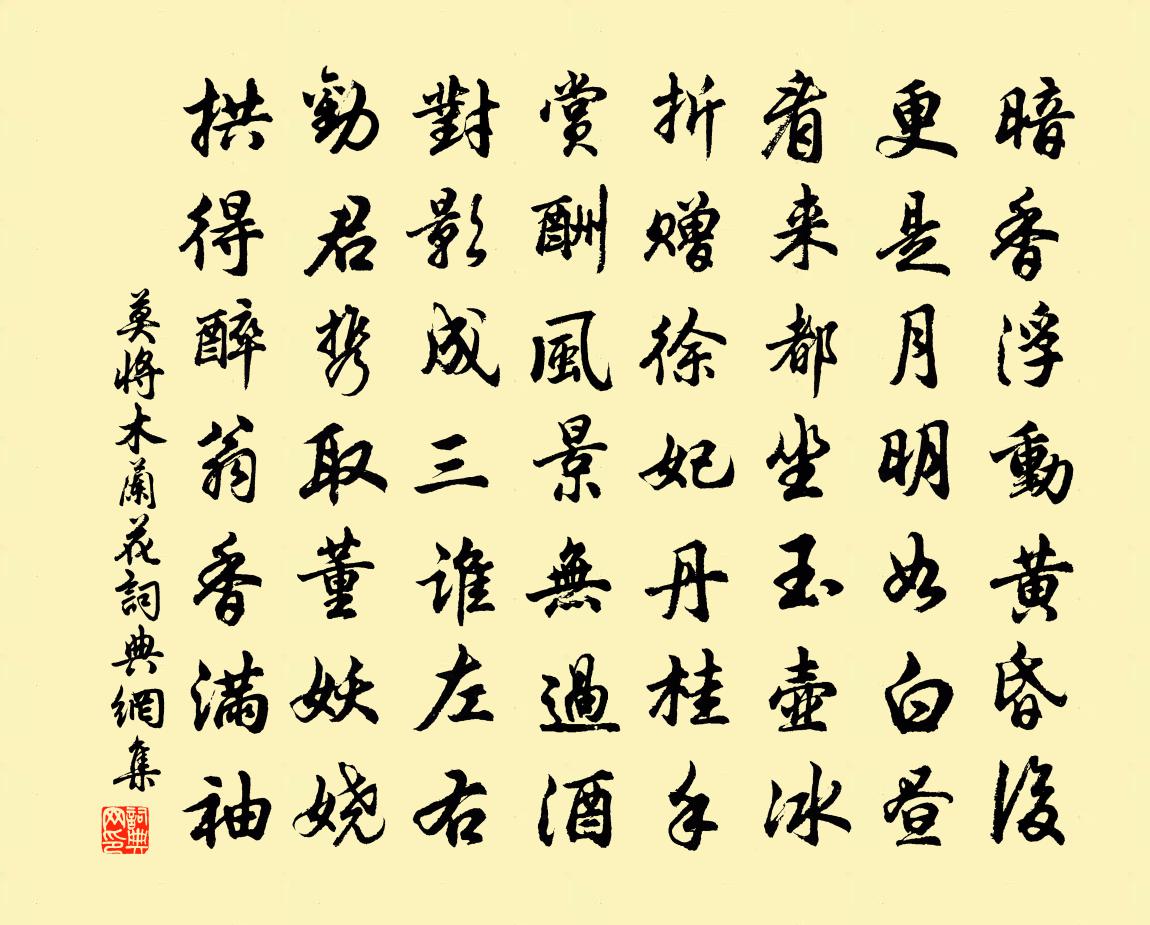 暗香浮動黄昏後
更是月明如白晝
看来都坐玉壺冰
折贈徐妃丹桂手
賞酬風景無過酒
對影成三誰左右
勸君携取董妖嬈
拱得醉翁香滿袖
莫將木蘭花詞典網集
詞典網印